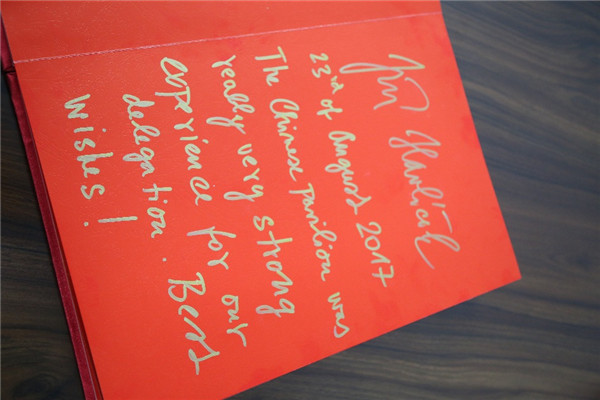 Jiří Havlíček
23rd of August 2017
The Chinese Pavilion was
really very strong
experience for our
delegation. Best
wishes!